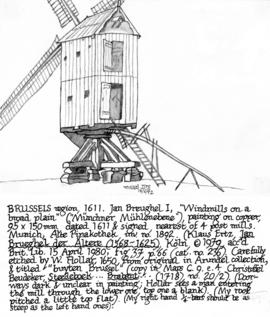 BRUSSELS region, 1611. Jan Breughel I, "Windmills on a
broad plain" (Münchner Mühlenebene"), painting on copper,
95 x 150 mm dated 1611 & signed nearest of 4 post mills.
Munich, Alte Pinakothek inv no. 1892. (Klaus Ertz, Jan
Brueghel der Ältere (1568-1625), Köln ©1979, acc'd
Brit. Lib. 15 April 1980; Fig. 37 p. 66 (cat. no. 236). Carefully
etched by W. Hollar, 1650, from original in Arundel collection,
& titled "buyten Brussel" (copy in Maps C. 9. e. 4 Christoffel
Beudeker: Stedeboek Brabant (1718) no. 20/2) (Door-
ways dark & unclear in painting; Hollar sees a man entering
the mill through the lower one, top one a blank). (My roof
pitched a little too flat). (My right hand ¼-bars should be as
steep as the left hand ones).